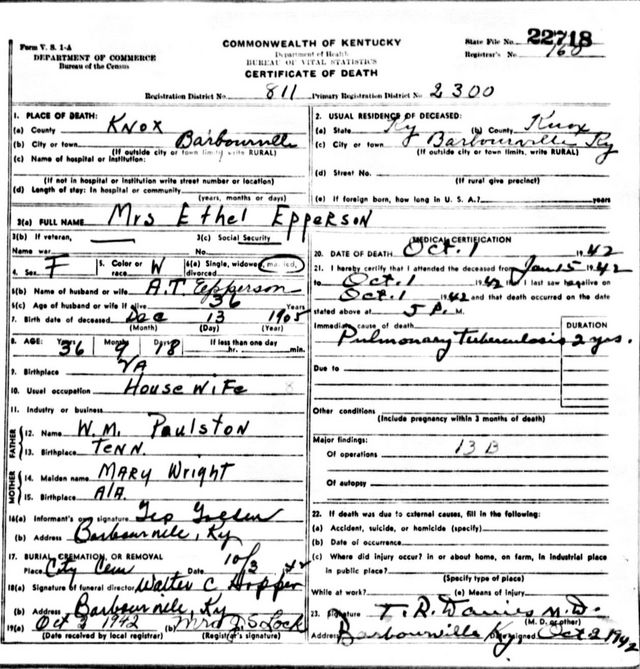 Form V. S. 1-A
DEPARTMENT OF COMMERCE
Bureau of the Census
COMMONWEALTH OF KENTUCKY
Department of Health
BUREAU OF VITAL STATISTICS
CERTIFICATE OF DEATH
State File No. 22718
Registrar's No. 160
Registration District No. 811 Primary Registration District No. 2300
1. PLACE OF DEATH:
(a) County Knox
(b) City or town Barbourville
(If outside city or town limits, write RURAL)
(c) Name of hospital or institution:
(If not in hospital or institution write street number or location)
(d) Length of stay: In hospital or community
(years, months or days)
2. USUAL RESIDENCE OF DECEASED:
(a) State Ky (b) County Knox
(c) City or town Barbourville Ky
(If outside city or town limits, write RURAL)
(d) Street No.
(If rural give precinct)
(e) If foreign born, how long in U. S. A.? years
3(a) FULL NAME Mrs Ethel Epperson
3(b) If veteran,
Name war
3(c) Social Security
No.
4. Sex F 5. Color or race W 6(a) Single, widowed, married, divorced
6(b) Name of husband or wife A.T. Epperson
6(c) Age of husband or wife if alive 36 Years
7. Birth date of deceased Dec 13 1905
(Month) (Day) (Year)
8. AGE: Years Months Days If less than one day
36 9 18 hr. min.
9. Birthplace VA
10. Usual occupation House Wife
11. Industry or business
FATHER
12. Name W.M. Paulston
13. Birthplace Tenn.
MOTHER
14. Maiden name Mary Wright
15. Birthplace Ala.
16(a) Informant's own signature
(b) Address Barbourville, Ky
17. BURIAL, CREMATION, OR REMOVAL
Place City Cem Date 10/3 42
18(a) Signature of funeral director Walter C Hopper
(b) Address Barbourville, Ky
19(a) Oct 2 1942 (b) Mrs J. S. Lock
(Date received by local registrar) (Registrar's signature)
MEDICAL CERTIFICATION
20. DATE OF DEATH Oct. 1 1942
21. I hereby certify that I attended the deceased from Jan 15 1942
to Oct. 1 1942 I last saw her alive on
Oct. 1 1942 and that death occurred on the date
stated above at 5 P. M.
Immediate cause of death DURATION
Pulmonary tuberculosis 2 yrs.
Due to
Other conditions
(Include pregnancy within 3 months of death)
Major findings:
Of operations 13 B
Of autopsy
22. If death was due to external causes, fill in the following:
(a) Accident, suicide, or homicide (specify)
(b) Date of occurrence
(c) Where did injury occur? in or about home, on farm, in industrial place
in public place?
(Specify type of place)
While at work? (e) Means of injury
23. Signature T. R. Davies M.D.
(M. D. or other)
Address Barbourville Ky, Date signed Oct 2 1942